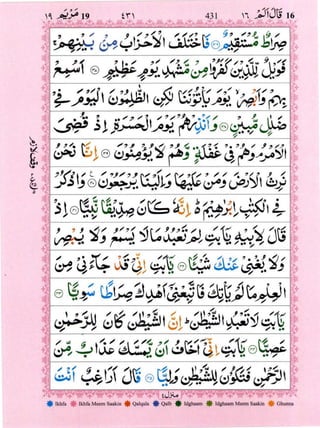 ١٩ مَرْيَم 19 ٤٣١ 431 ١٦ قَالَ اَلَمْ 16
صِرَاطٌ مُّسْتَقِيْمٌ ۝٣٦ فَاخْتَلَفَ الْاَحْزَابُ مِنْۢ بَيْنِهِمْ ۚ
فَوَيْلٌ لِّلَّذِيْنَ كَفَرُوْا مِنْ مَّشْهَدِ يَوْمٍ عَظِيْمٍ ۝٣٧ اَسْمِعْ
بِهِمْ وَاَبْصِرْ ۙ يَوْمَ يَاْتُوْنَنَا لٰكِنِ الظّٰلِمُوْنَ الْيَوْمَ فِيْ
ضَلٰلٍ مُّبِيْنٍ ۝٣٨ وَاَنْذِرْهُمْ يَوْمَ الْحَسْرَةِ اِذْ قُضِيَ
الْاَمْرُ ۘ وَهُمْ فِيْ غَفْلَةٍ وَّهُمْ لَا يُؤْمِنُوْنَ ۝٣٩ اِنَّا نَحْنُ
نَرِثُ الْاَرْضَ وَمَنْ عَلَيْهَا وَاِلَيْنَا يُرْجَعُوْنَ ۝٤٠ وَاذْكُرْ
فِي الْكِتٰبِ اِبْرٰهِيْمَ ۚ اِنَّهٗ كَانَ صِدِّيْقًا نَّبِيًّا ۝٤١ اِذْ
قَالَ لِاَبِيْهِ يٰۤاَبَتِ لِمَ تَعْبُدُ مَا لَا يَسْمَعُ وَلَا يُبْصِرُ
وَلَا يُغْنِيْ عَنْكَ شَيْـًٔا ۝٤٢ يٰۤاَبَتِ اِنِّيْ قَدْ جَآءَنِيْ مِنَ
الْعِلْمِ مَا لَمْ يَاْتِكَ فَاتَّبِعْنِيْۤ اَهْدِكَ صِرَاطًا سَوِيًّا ۝٤٣
يٰۤاَبَتِ لَا تَعْبُدِ الشَّيْطٰنَ ؕ اِنَّ الشَّيْطٰنَ كَانَ لِلرَّحْمٰنِ
عَصِيًّا ۝٤٤ يٰۤاَبَتِ اِنِّيْۤ اَخَافُ اَنْ يَّمَسَّكَ عَذَابٌ مِّنَ
الرَّحْمٰنِ فَتَكُوْنَ لِلشَّيْطٰنِ وَلِيًّا ۝٤٥ قَالَ اَرَاغِبٌ اَنْتَ
منزل ٤
Ikhfa Ikhfa Meem Saakin Qalqala Qalb Idghaam Idghaam Meem Saakin Ghunna